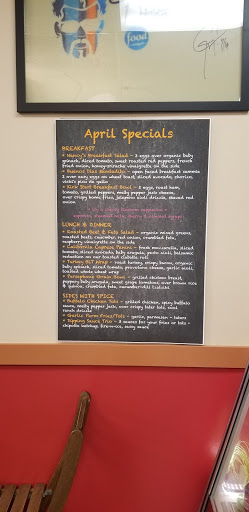 food
April Specials
BREAKFAST
• Nancy's Breakfast Salad - 2 eggs over organic baby
spinach, diced tomato, sweet roasted red peppers, french
fried onion, honey-sriracha vinaigrette on the side
• Buenos Dias - open faced breakfast sammie
2 over easy eggs on wheat toast, sliced avocado, chorizo,
pico de gallo
• Kick Start Breakfast Bowl - 2 eggs, roast ham,
tomato, grilled peppers, melty pepper jack cheese,
over crispy home fries, jalapeno aioli drizzle, shaved red
onion
LUNCH & DINNER
• Roasted Beet & Feta Salad - organic mixed greens,
roasted beets, cucumber, red onion, crumbled feta,
raspberry vinaigrette on the side
• California Caprese Panini - fresh mozzarella, sliced
tomato, sliced avocado, baby arugula, pesto aioli, balsamic
reduction on our toasted ciabatta roll
• Turkey BLT Wrap - roast turkey, crispy bacon, organic
baby spinach, diced tomato, provolone cheese, garlic aioli,
toasted whole wheat wrap
• Powerhouse Grain Bowl - grilled chicken breast,
peppery baby arugula, sweet grape tomatoes, over brown rice
& quinoa, crumbled feta,
SIDES WITH SPICE
• Buffalo Chicken Tots - grilled chicken, spicy buffalo
sauce, melty pepper jack, over crispy tater tots, cool
ranch drizzle
• Garlic Parm Fries/Tots - garlic, parmesan + lemon
• Dipping Sauce Trio - 3 sauces for your fries or tots -
chipotle ketchup,